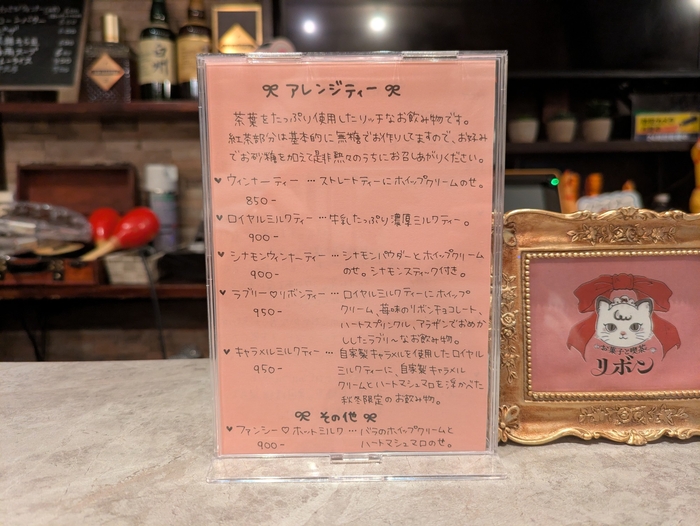 アレンジティー
茶葉をたっぷり使用したリッチなお飲み物です。
紅茶部分は基本的に無糖でお作りしてますので、お好み
でお砂糖を加えて是非熱々のうちにお召しあがりください。
♥ウィンナーティー … ストレートティーにホイップクリームのせ。
850-
♥ロイヤルミルクティー … 牛乳たっぷり濃厚ミルクティー。
900-
♥シナモンウィンナーティー … シナモンパウダーとホイップクリーム
900- のせ。シナモンスティック付き。
♥ラブリー♡リボンティー … ロイヤルミルクティーにホイップ
950- クリーム、苺味のリボンチョコレート、
ハートスプリンクル、アラザンでおめか
ししたラブリ〜なお飲み物。
♥キャラメルミルクティー … 自家製キャラメルを使用したロイヤル
950- ミルクティーに、自家製キャラメル
クリームとハートマシュマロを浮かべた
秋冬限定のお飲み物。
その他
♥ファンシー♡ホットミルク … バラのホイップクリームと
900- ハートマシュマロのせ。
お菓子と喫茶
リボン
白州